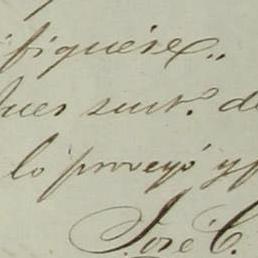 ifiquese..
Juez sust.º de
lo proveyó y f
José C.